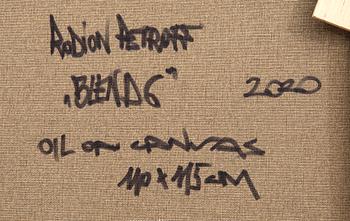 RODION PETROFF
„BLEND6" 2020
OIL ON CANVAS
110 X 115 CM